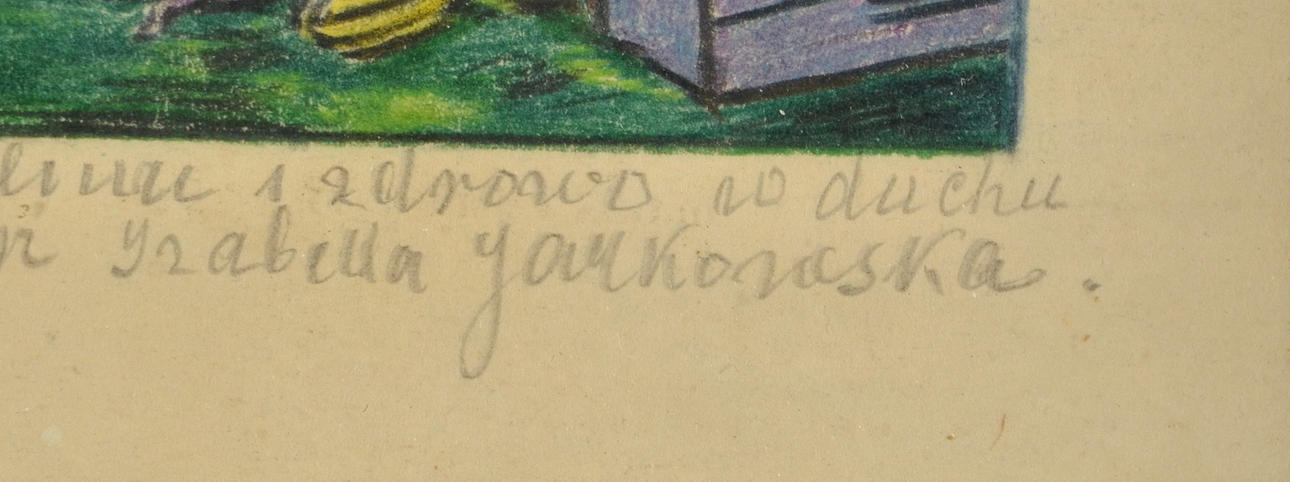 i zdrowo w duchu
Izabella Jałkowska.